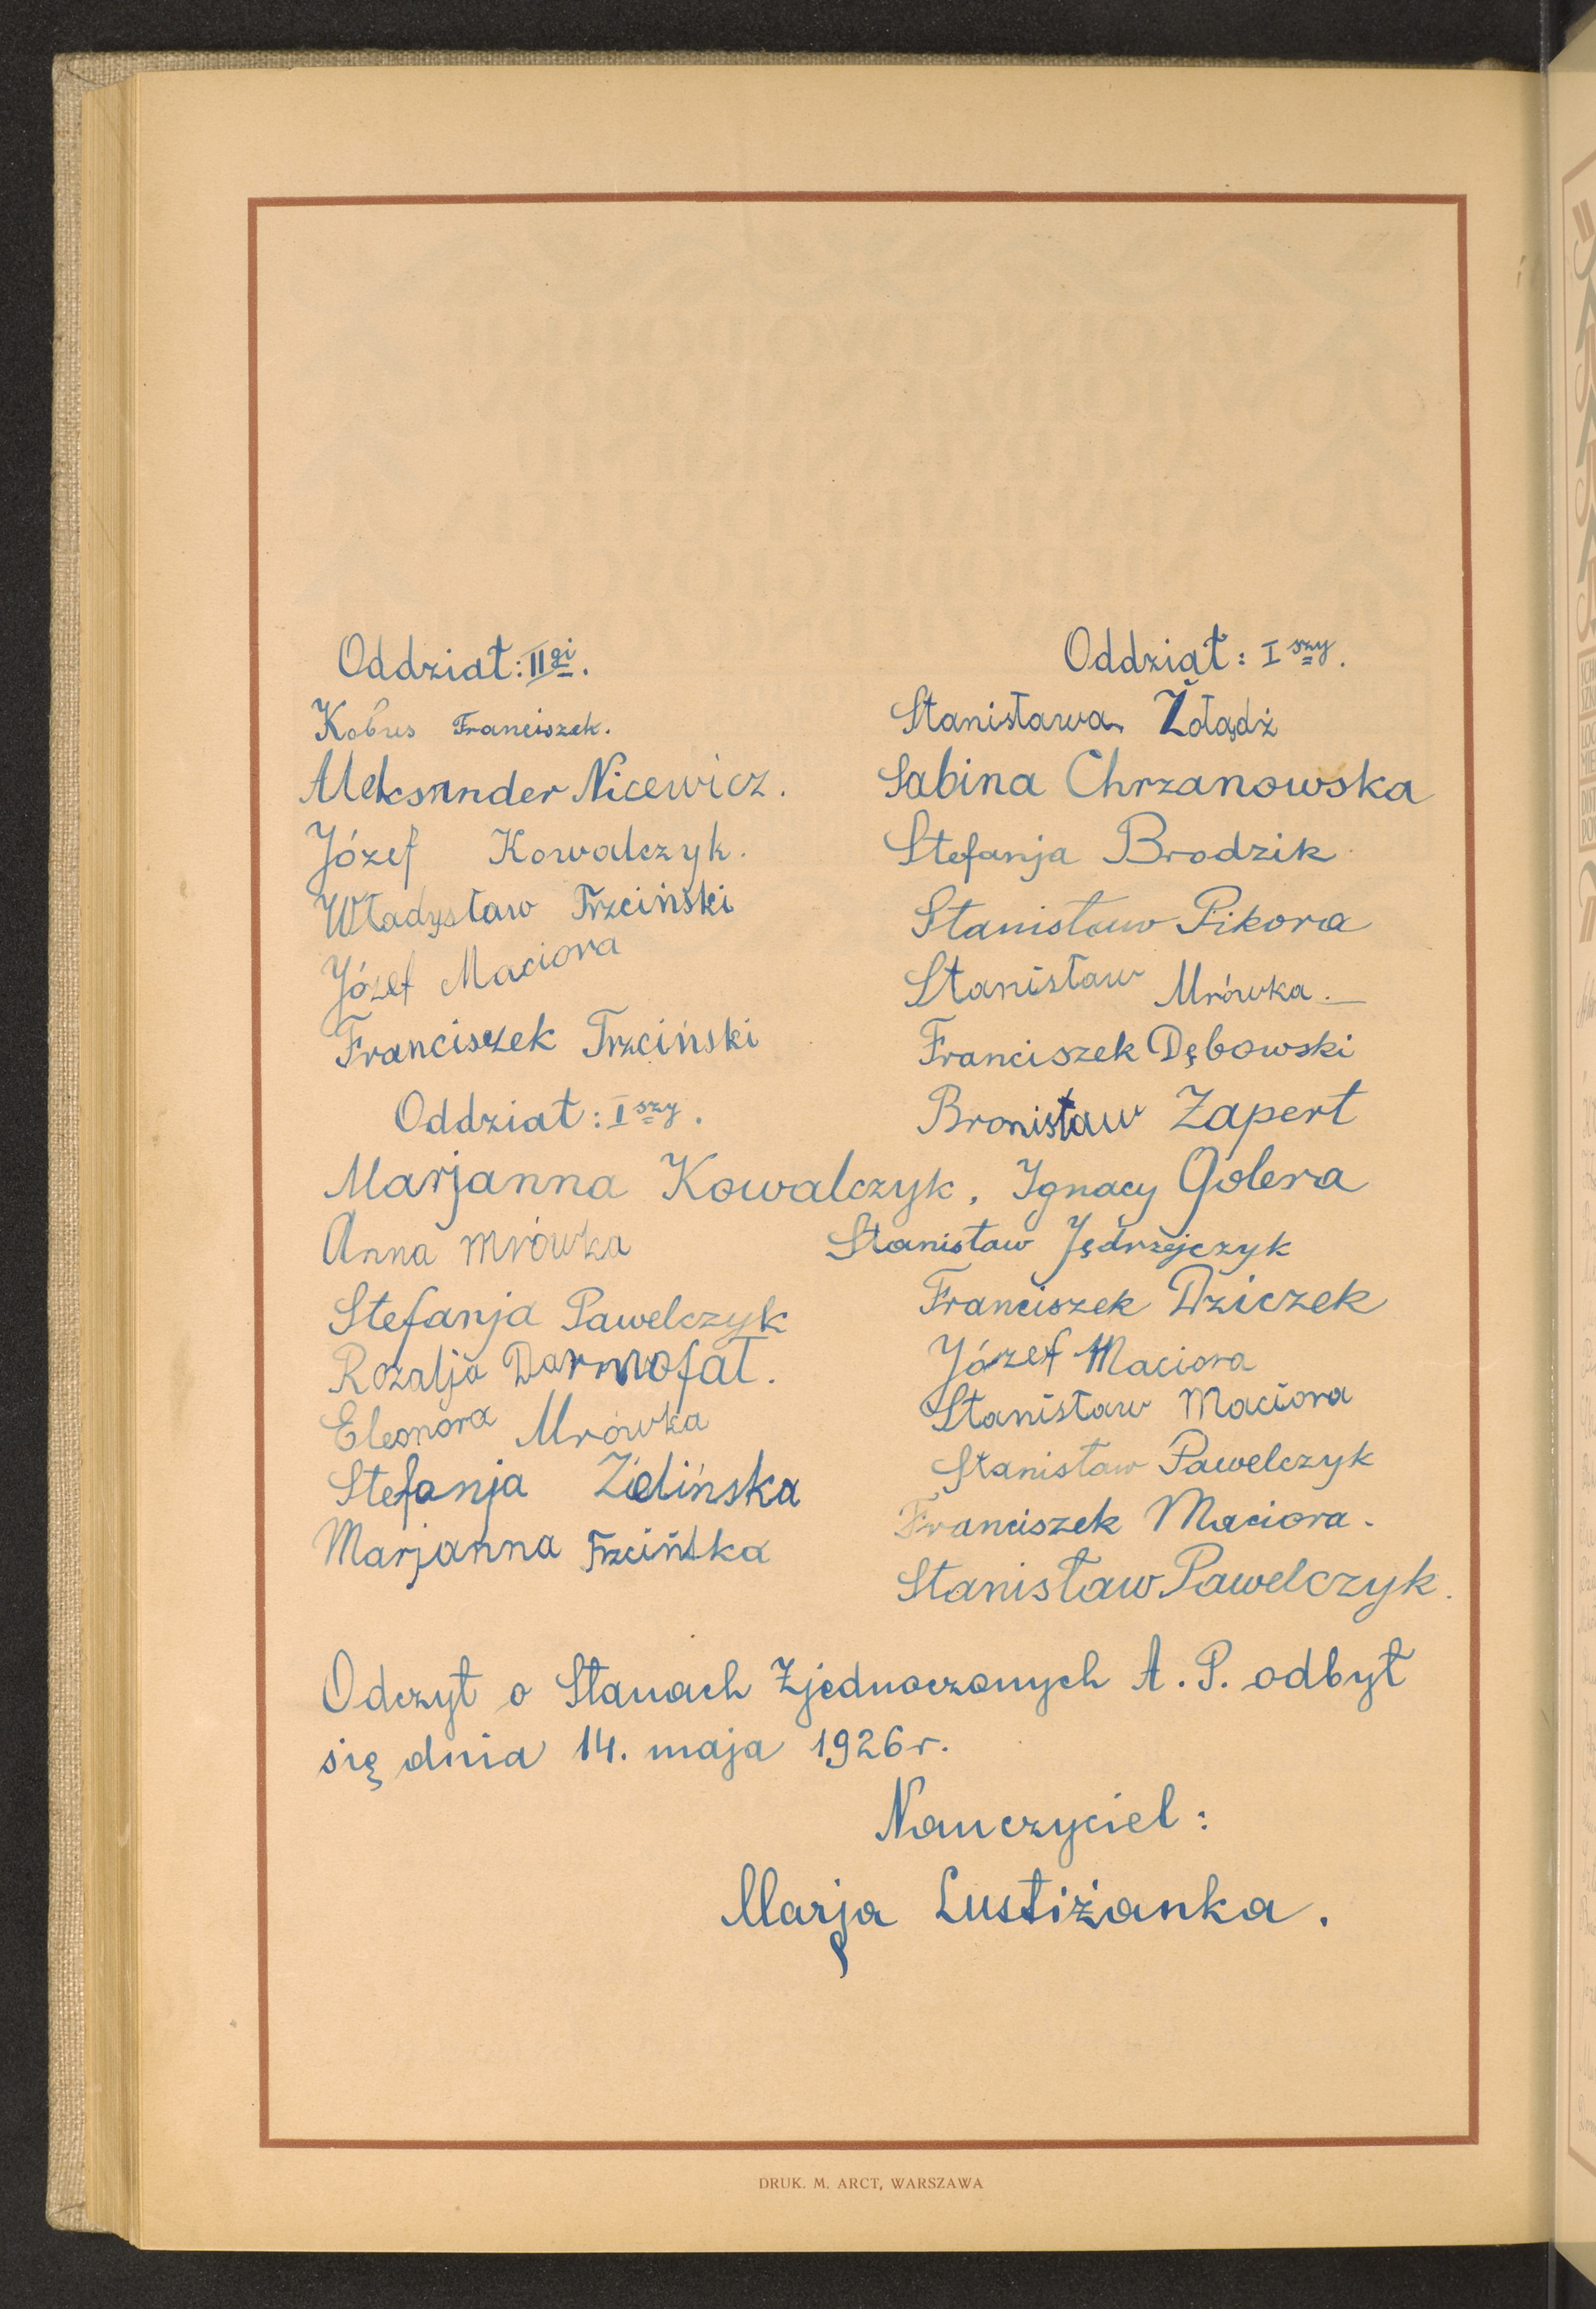 Oddział: II gi.
Kobus Franciszek.
Aleksander Nicewicz.
Józef Kowalczyk.
Władysław Trzciński
Józef Maciora
Franciszek Trzciński
Oddział: I szy.
Marjanna Kowalczyk,
Anna Mrówka
Stefanja Pawelczyk
Rozalja Darmofał.
Eleonora Mrówka
Stefanja Zielińska
Marjanna Trzcińska
Oddział: I szy.
Stanisława Żołądź
Sabina Chrzanowska
Stefanja Brodzik
Stanisław Pikora
Stanisław Mrówka.
Franciszek Dębowski
Bronisław Zapert
Ignacy Golera
Stanisław Jędrzejczyk
Franciszek Dziczek
Józef Maciora
Stanisław Maciora
Stanisław Pawelczyk
Franciszek Maciora.
Stanisław Pawelczyk.
Odczyt o Stanach Zjednoczonych A. P. odbył
się dnia 14. maja 1926 r.
Nauczyciel:
Marja Lustiżanka.
DRUK. M. ARCT, WARSZAWA